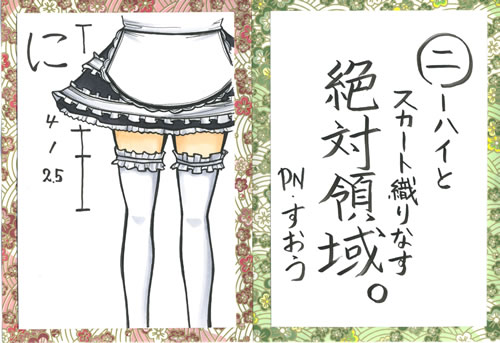 に
4
/
2.5
ニーハイと
スカート織りなす
絶対領域。
PN.すおう